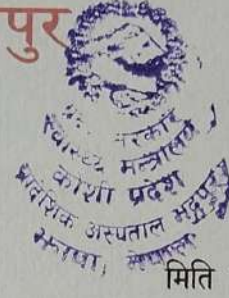 पुर
स्वास्थ्य मन्त्रालय
कोशी प्रदेश
प्रादेशिक अस्पताल भद्रपुर
झापा, नेपाल
मिति